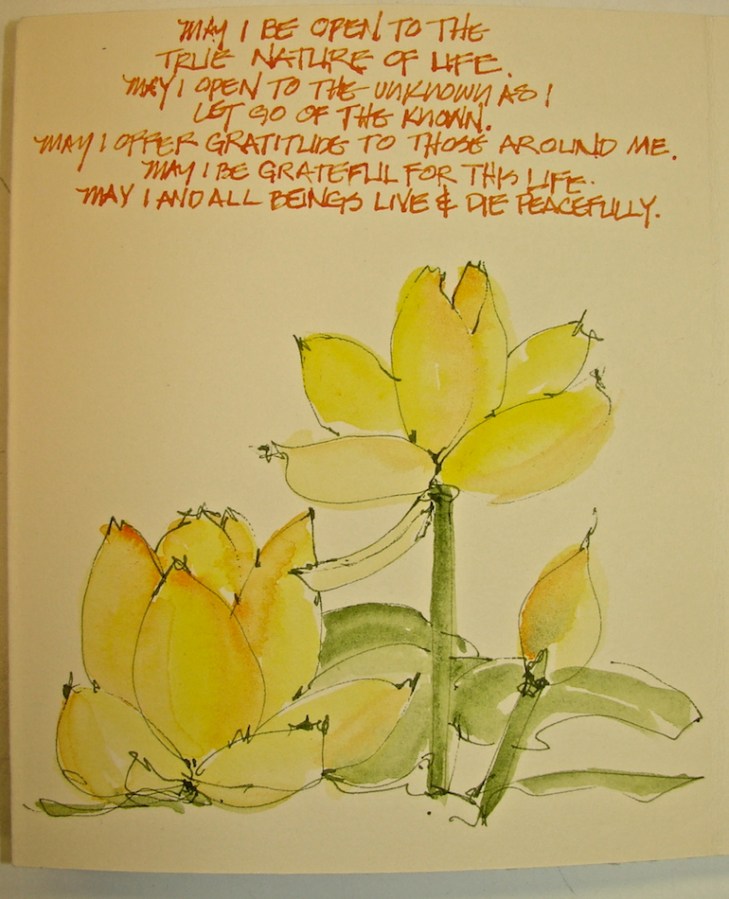 MAY I BE OPEN TO THE
TRUE NATURE OF LIFE.
MAY I OPEN TO THE UNKNOWN AS I
LET GO OF THE KNOWN.
MAY I OFFER GRATITUDE TO THOSE AROUND ME.
MAY I BE GRATEFUL FOR THIS LIFE.
MAY I AND ALL BEINGS LIVE & DIE PEACEFULLY.